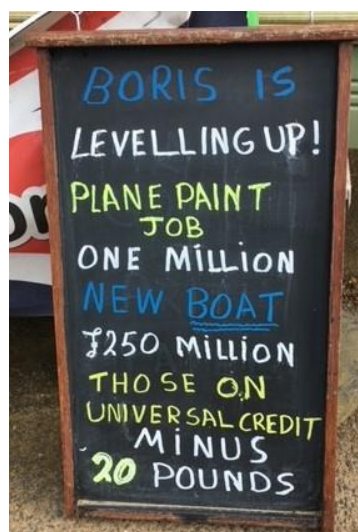 BORIS IS
LEVELLING UP!
PLANE PAINT
JOB
ONE MILLION
NEW BOAT
£250 MILLION
THOSE ON
UNIVERSAL CREDIT
MINUS
20 POUNDS